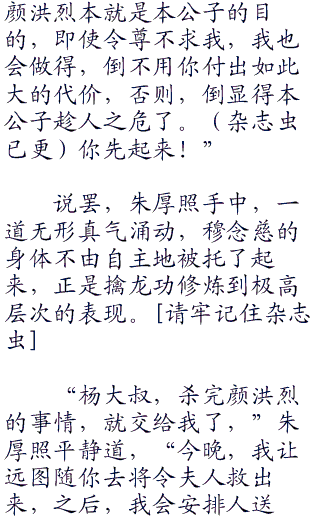 颜洪烈本就是本公子的目
的，即使令尊不求我，我也
会做得，倒不用你付出如此
大的代价，否则，倒显得本
公子趁人之危了。（杂志虫
已更）你先起来！”
说罢，朱厚照手中，一
道无形真气涌动，穆念慈的
身体不由自主地被托了起
来，正是擒龙功修炼到极高
层次的表现。[请牢记住杂志
虫]
“杨大叔，杀完颜洪烈
的事情，就交给我了，”朱
厚照平静道，“今晚，我让
远图随你去将令夫人救出
来，之后，我会安排人送